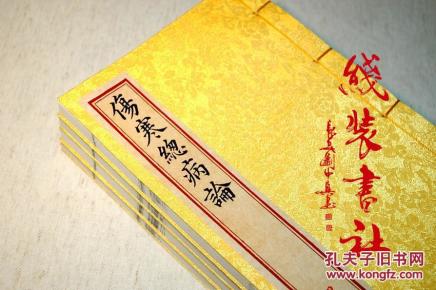 傷寒總病論
线装書社
孔夫子旧书网
www.kongfz.com